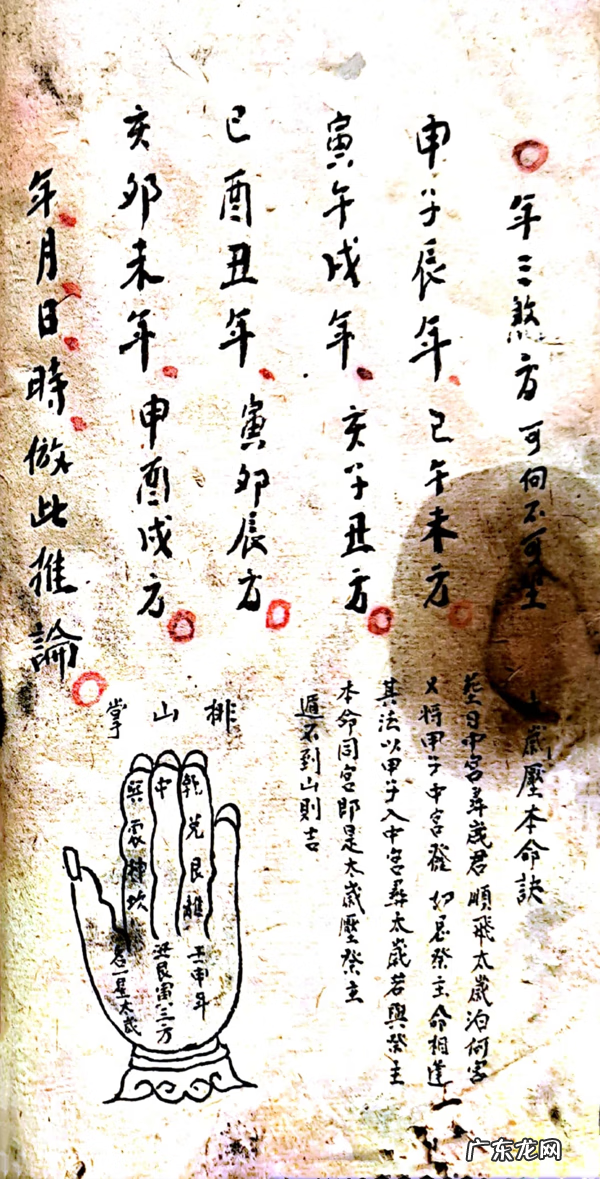 年三煞方可向不可坐
申子辰年巳午未方
寅午戌年亥子丑方
巳酉丑年寅卯辰方
亥卯未年申酉戌方
年月日時倣此推論
歲壓本命訣
葬日中宮尋歲君 順飛太歲泊何宮
又將甲子中宮發 如是祭主命相逢
其法以甲子入中宮尋太歲若與祭主
本命同宮即是太歲壓祭主
遁不到山則吉
排山掌
乾兌艮離
中
巽震坤坎
壬申年
艮寅三方
一星太歲
广东龙网